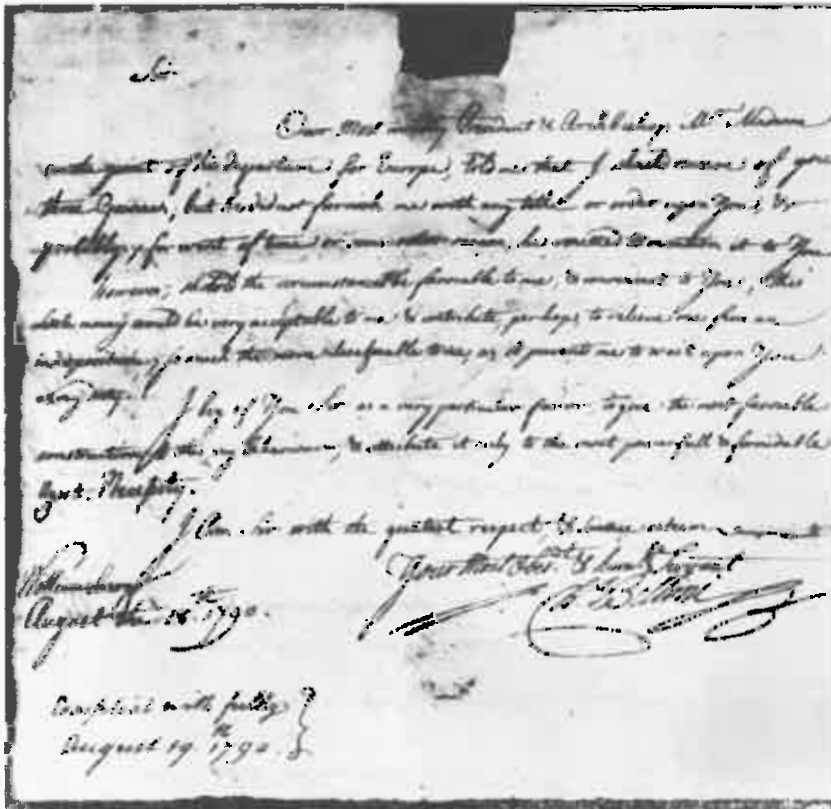 Sir
Our most worthy President & Archbishop Mr. Madison
on the point of his departure for Europe, told me that I should receive of you
three Guineas, but he did not furnish me with any letter or order upon You, &
probably, for want of time or some other reason, he omitted to mention it to You
However, should the circumstances be favourable to me, & convenient to You, this
whole money would be very acceptable to me & contribute, perhaps, to relieve me from an
so much the more to me, as it prevents me to wait upon You
I beg of You Sir as a very particular favour, to give the most favourable
construction to this my & attribute it only to the most powerfull & formidable
Necessity.
I am Sir with the greatest respect & sincere esteem
Your Most Obed.t & hum.le Servant
Williamsburg
August the 18th 1790.
Complied with fully
August 19th 1790